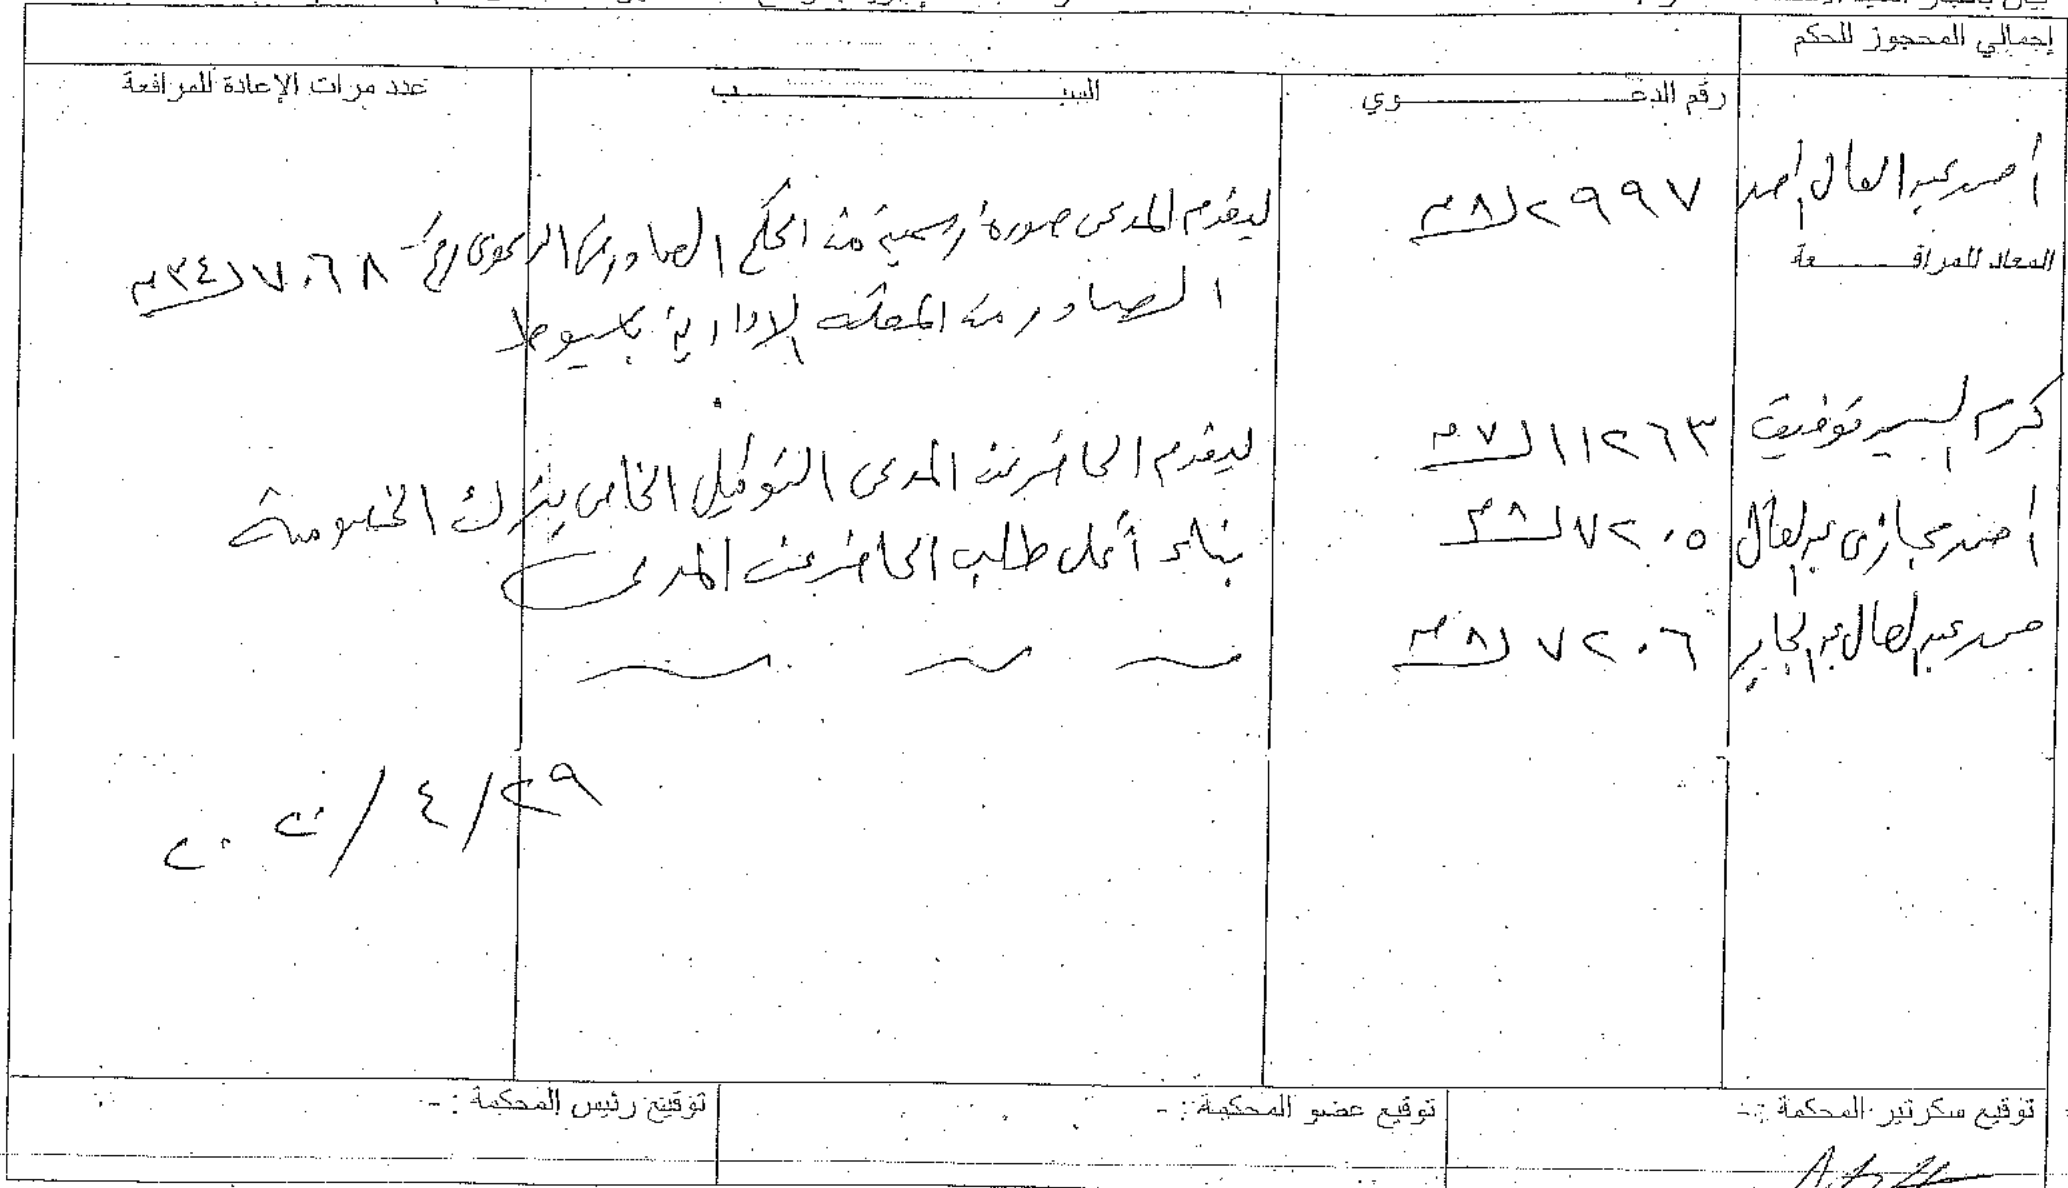 إجمالي المحجوز للحكم
رقم الدعوي السبب عدد مرات الإعادة للمرافعة
أحمد عبد العال أحمد ٢٩٩٧ لـ ٨ م ليقدم المدعى صورة رسمية من الحكم الصادر فى الدعوى رقم ٧٠٦٨ لـ ٣٤ م
المعاد للمرافعة
الصادر من المحكمة الإدارية بأسيوط
كرم السيد توفيق ١١٢٦٣ لـ ٧ م ليقدم الحاضر عن المدعى التوكيل الخاص بترك الخصومة
أحمد حجازى عبد العال ٧٢٠٥ لـ ٨ م بناء على طلب الحاضر عن المدعى
عبد العال عبد الجابر ٧٢٠٦ لـ ٨ م
٢٩/٤/٢٠٢٠
توقيع سكرتير المحكمة :- توقيع عضو المحكمة :- توقيع رئيس المحكمة :-